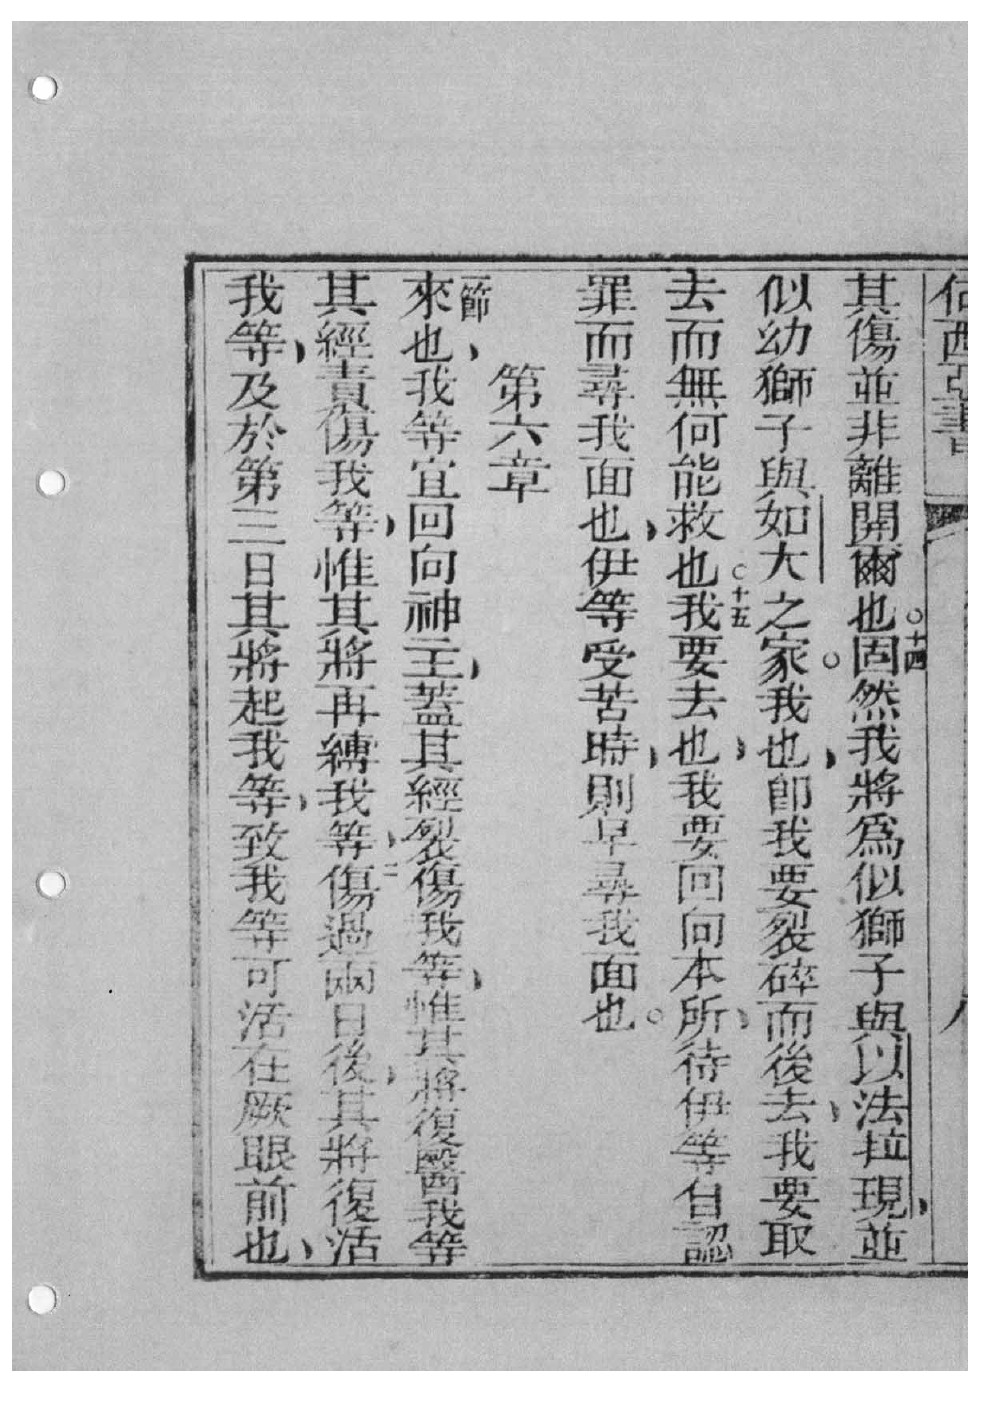 何西亞書
八
其傷並非離開爾也○十四固然我將為似獅子與以法拉現、並
似幼獅子與如大之家○我也、即我要裂碎而後去、我要取
去而無何能救也○十五我要去也、我要回向本所、待伊等自認
罪而尋我面也、伊等受苦時、則早尋我面也○
第六章
一節來也、我等宜回向神主、蓋其經裂傷我等、惟其將復醫我等
其經責傷我等、惟其將再縛我等傷、二過兩日後、其將復活
我等、及於第三日其將起我等、致我等可活在厥眼前也、